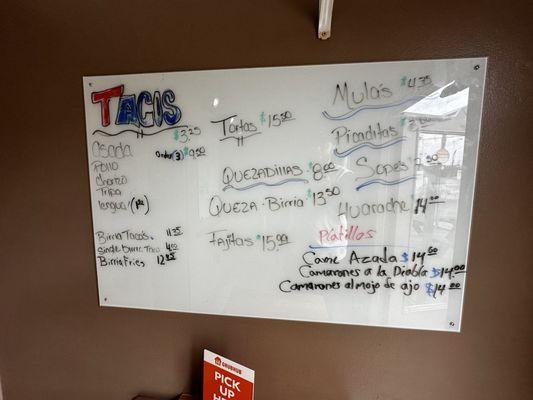 TACOS
$3.25
Asada
Order (3) $9.50
Pollo
Chorizo
Tripa
lengua
Birria Tacos
11.35
Single Birria Taco
4.00
Birria Fries
12.95
Tortas $15.50
QUEZADILLAS $8.00
QUEZA-Birria $13.50
Fajitas $15.99
Mulas $4.35
Picaditas
Sopes
Huarache 14.00
Platillos
Carne Azada $14.00
Camarones a la Diabla $14.00
Camarones al mojo de ajo $14.00
GRUBHUB
PICK
UP
HERE